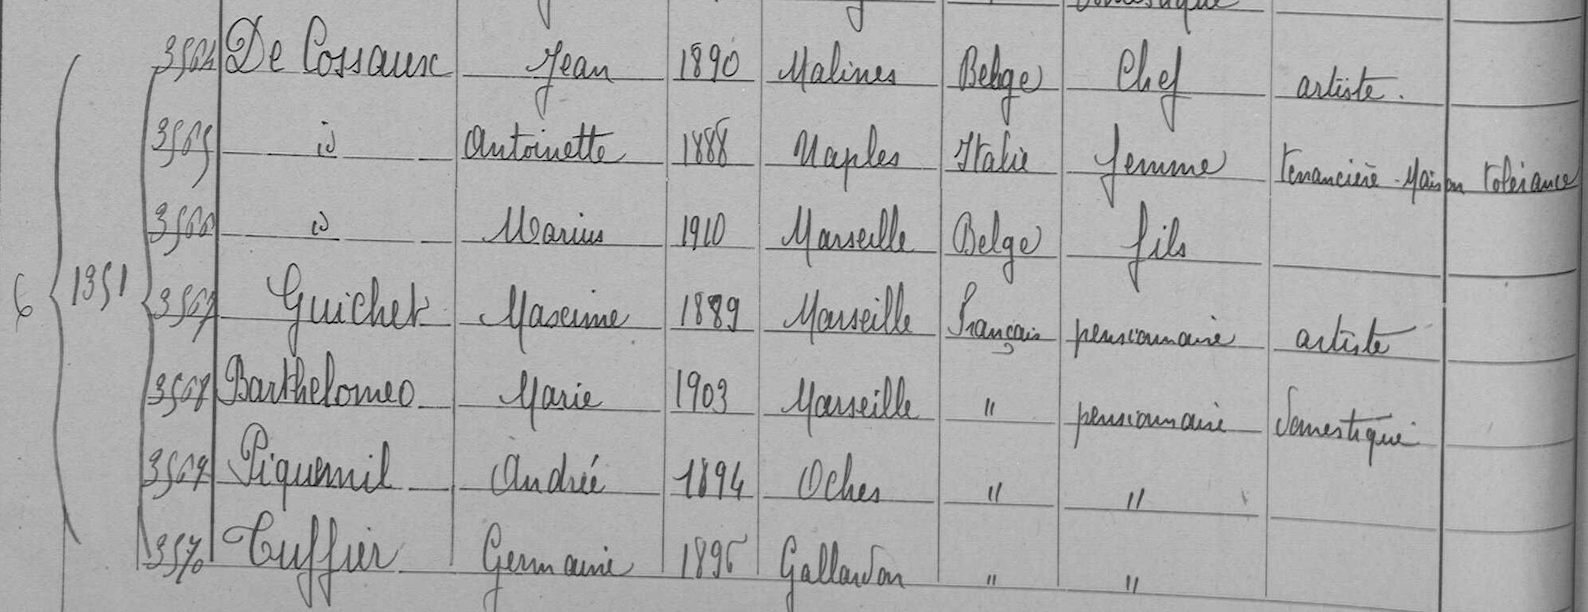 3564 De Cossaux Jean 1890 Malines Belge Chef artiste.
3565 id Antoinette 1888 Naples Italie femme tenancière Maison tolérance
3566 id Marius 1910 Marseille Belge fils
6 1351 3567 Guichet Maxime 1889 Marseille Français pensionnaire artiste
3568 Barthelomeo Marie 1903 Marseille " pensionnaire domestique
3569 Piquemil Andrée 1894 Oches " "
3570 Tuffier Germaine 1896 Gallardon " "